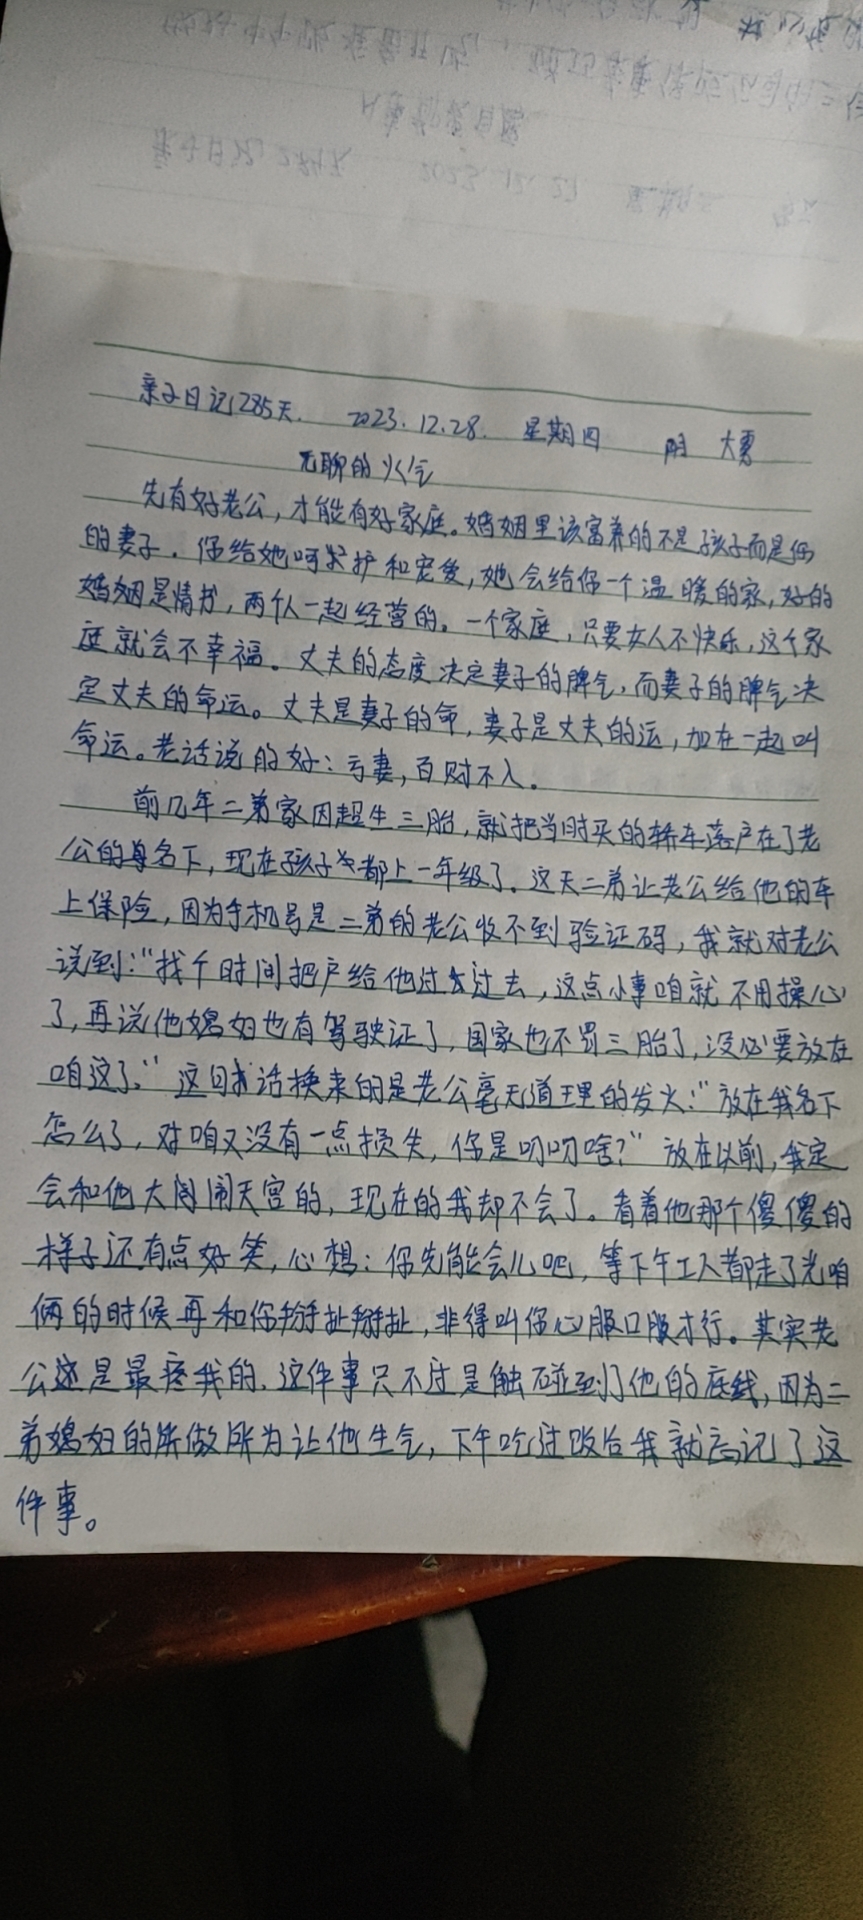 亲子日记285天. 2023.12.28. 星期四 阴 大雾
无聊的火气
先有好老公，才能有好家庭。婚姻里该富养的不是孩子而是你
的妻子.你给她呵护和宠爱,她会给你一个温暖的家,好的
婚姻是情书,两个人一起经营的。一个家庭,只要女人不快乐,这个家
庭就会不幸福。丈夫的态度决定妻子的脾气,而妻子的脾气决
定丈夫的命运。丈夫是妻子的命,妻子是丈夫的运,加在一起叫
命运。老话说的好:亏妻,百财不入。
前几年二弟家因超生三胎,就把当时买的轿车落户在了老
公的名下,现在孩子都上一年级了.这天二弟让老公给他的车
上保险,因为手机号是二弟的老公收不到验证码,我就对老公
说到:"找个时间把户给他过过去,这点小事咱就不用操心
了,再说他媳妇也有驾驶证了,国家也不罚三胎了,没必要放在
咱这了."这句话换来的是老公毫无道理的发火:"放在我名下
怎么了,对咱又没有一点损失,你是叨叨啥?"放在以前,我定
会和他大闹天宫的,现在的我却不会了。看着他那个傻傻的
样子还有点好笑,心想:你先能会儿吧,等下午工人都走了光咱
俩的时候再和你掰扯掰扯,非得叫你心服口服才行。其实老
公还是最疼我的.这件事只不过是触碰到了他的底线,因为二
弟媳妇的所做所为让他生气,下午吃过饭后我就忘记了这
件事。